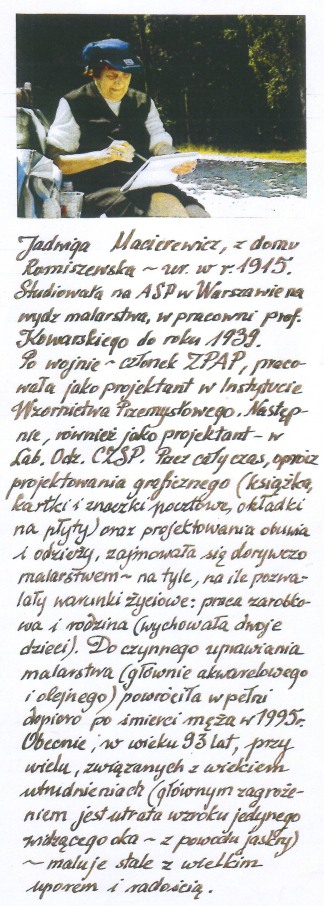 Jadwiga Macierewicz, z domu
Romiszewska ~ ur. w r. 1915.
Studiowała na ASP w Warszawie na
wydz malarstwa, w pracowni prof.
Kowarskiego do roku 1939.
Po wojnie ~ członek ZPAP, praco-
wała jako projektant w Instytucie
Wzornictwa Przemysłowego. Następ-
nie, również jako projektant - w
Lab. Odz. CZSP. Przez cały czas, oprócz
projektowania graficznego (książka,
kartki i znaczki pocztowe, okładki
na płyty) oraz projektowania obuwia
i odzieży, zajmowała się dorywczo
malarstwem ~ na tyle, na ile pozwa-
lały warunki życiowe: praca zarobko-
wa i rodzina (wychowała dwoje
dzieci). Do czynnego uprawiania
malarstwa (głównie akwarelowego
i olejnego) powróciła w pełni
dopiero po śmierci męża w 1995r.
Obecnie, w wieku 93 lat, przy
wielu, związanych z wiekiem
utrudnieniach (głównym zagroże-
niem jest utrata wzroku jedynego
widzącego oka ~ z powodu jaskry)
~ maluje stale z wielkim
uporem i radością.